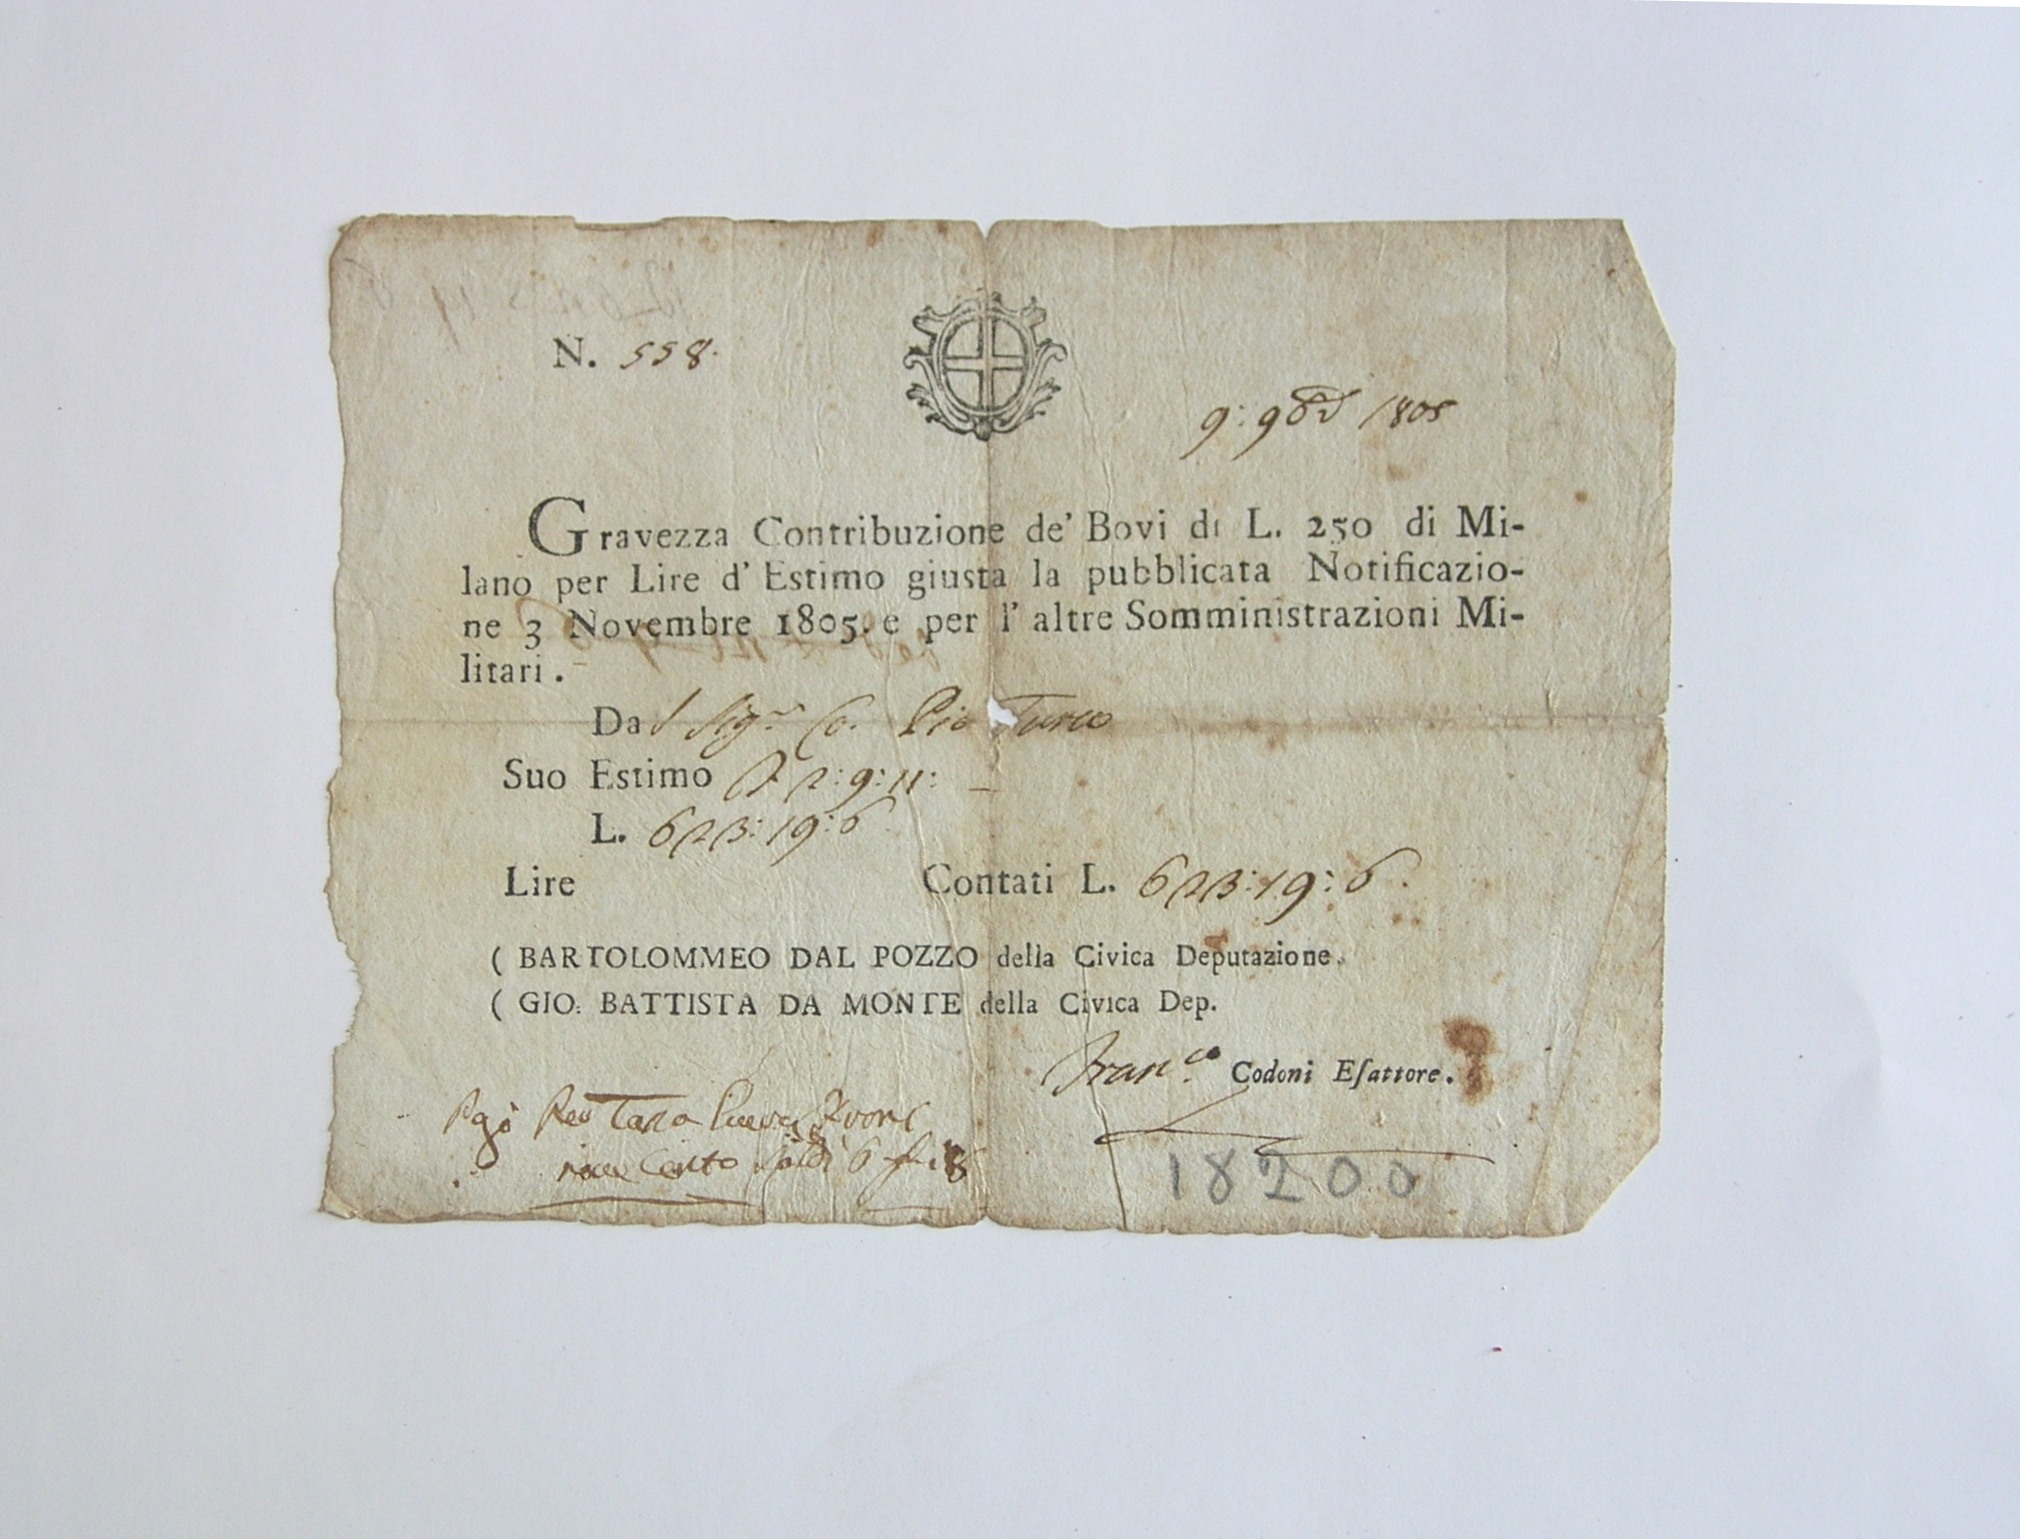 N. 558.
9: 9bre 1805
Gravezza Contribuzione de' Bovi di L. 250 di Mi-
lano per Lire d' Estimo giusta la pubblicata Notificazio-
ne 3 Novembre 1805. e per l' altre Somministrazioni Mi-
litari.
Dal Sigr. Co. Pio Turco
Suo Estimo 2:9:11:
L. 623:19:6
Lire Contati L. 623:19:6.
( BARTOLOMMEO DAL POZZO della Civica Deputazione.
( GIO: BATTISTA DA MONTE della Civica Dep.
Franco. Codoni Esattore.
Pagò
Conto Soldi 6
18200